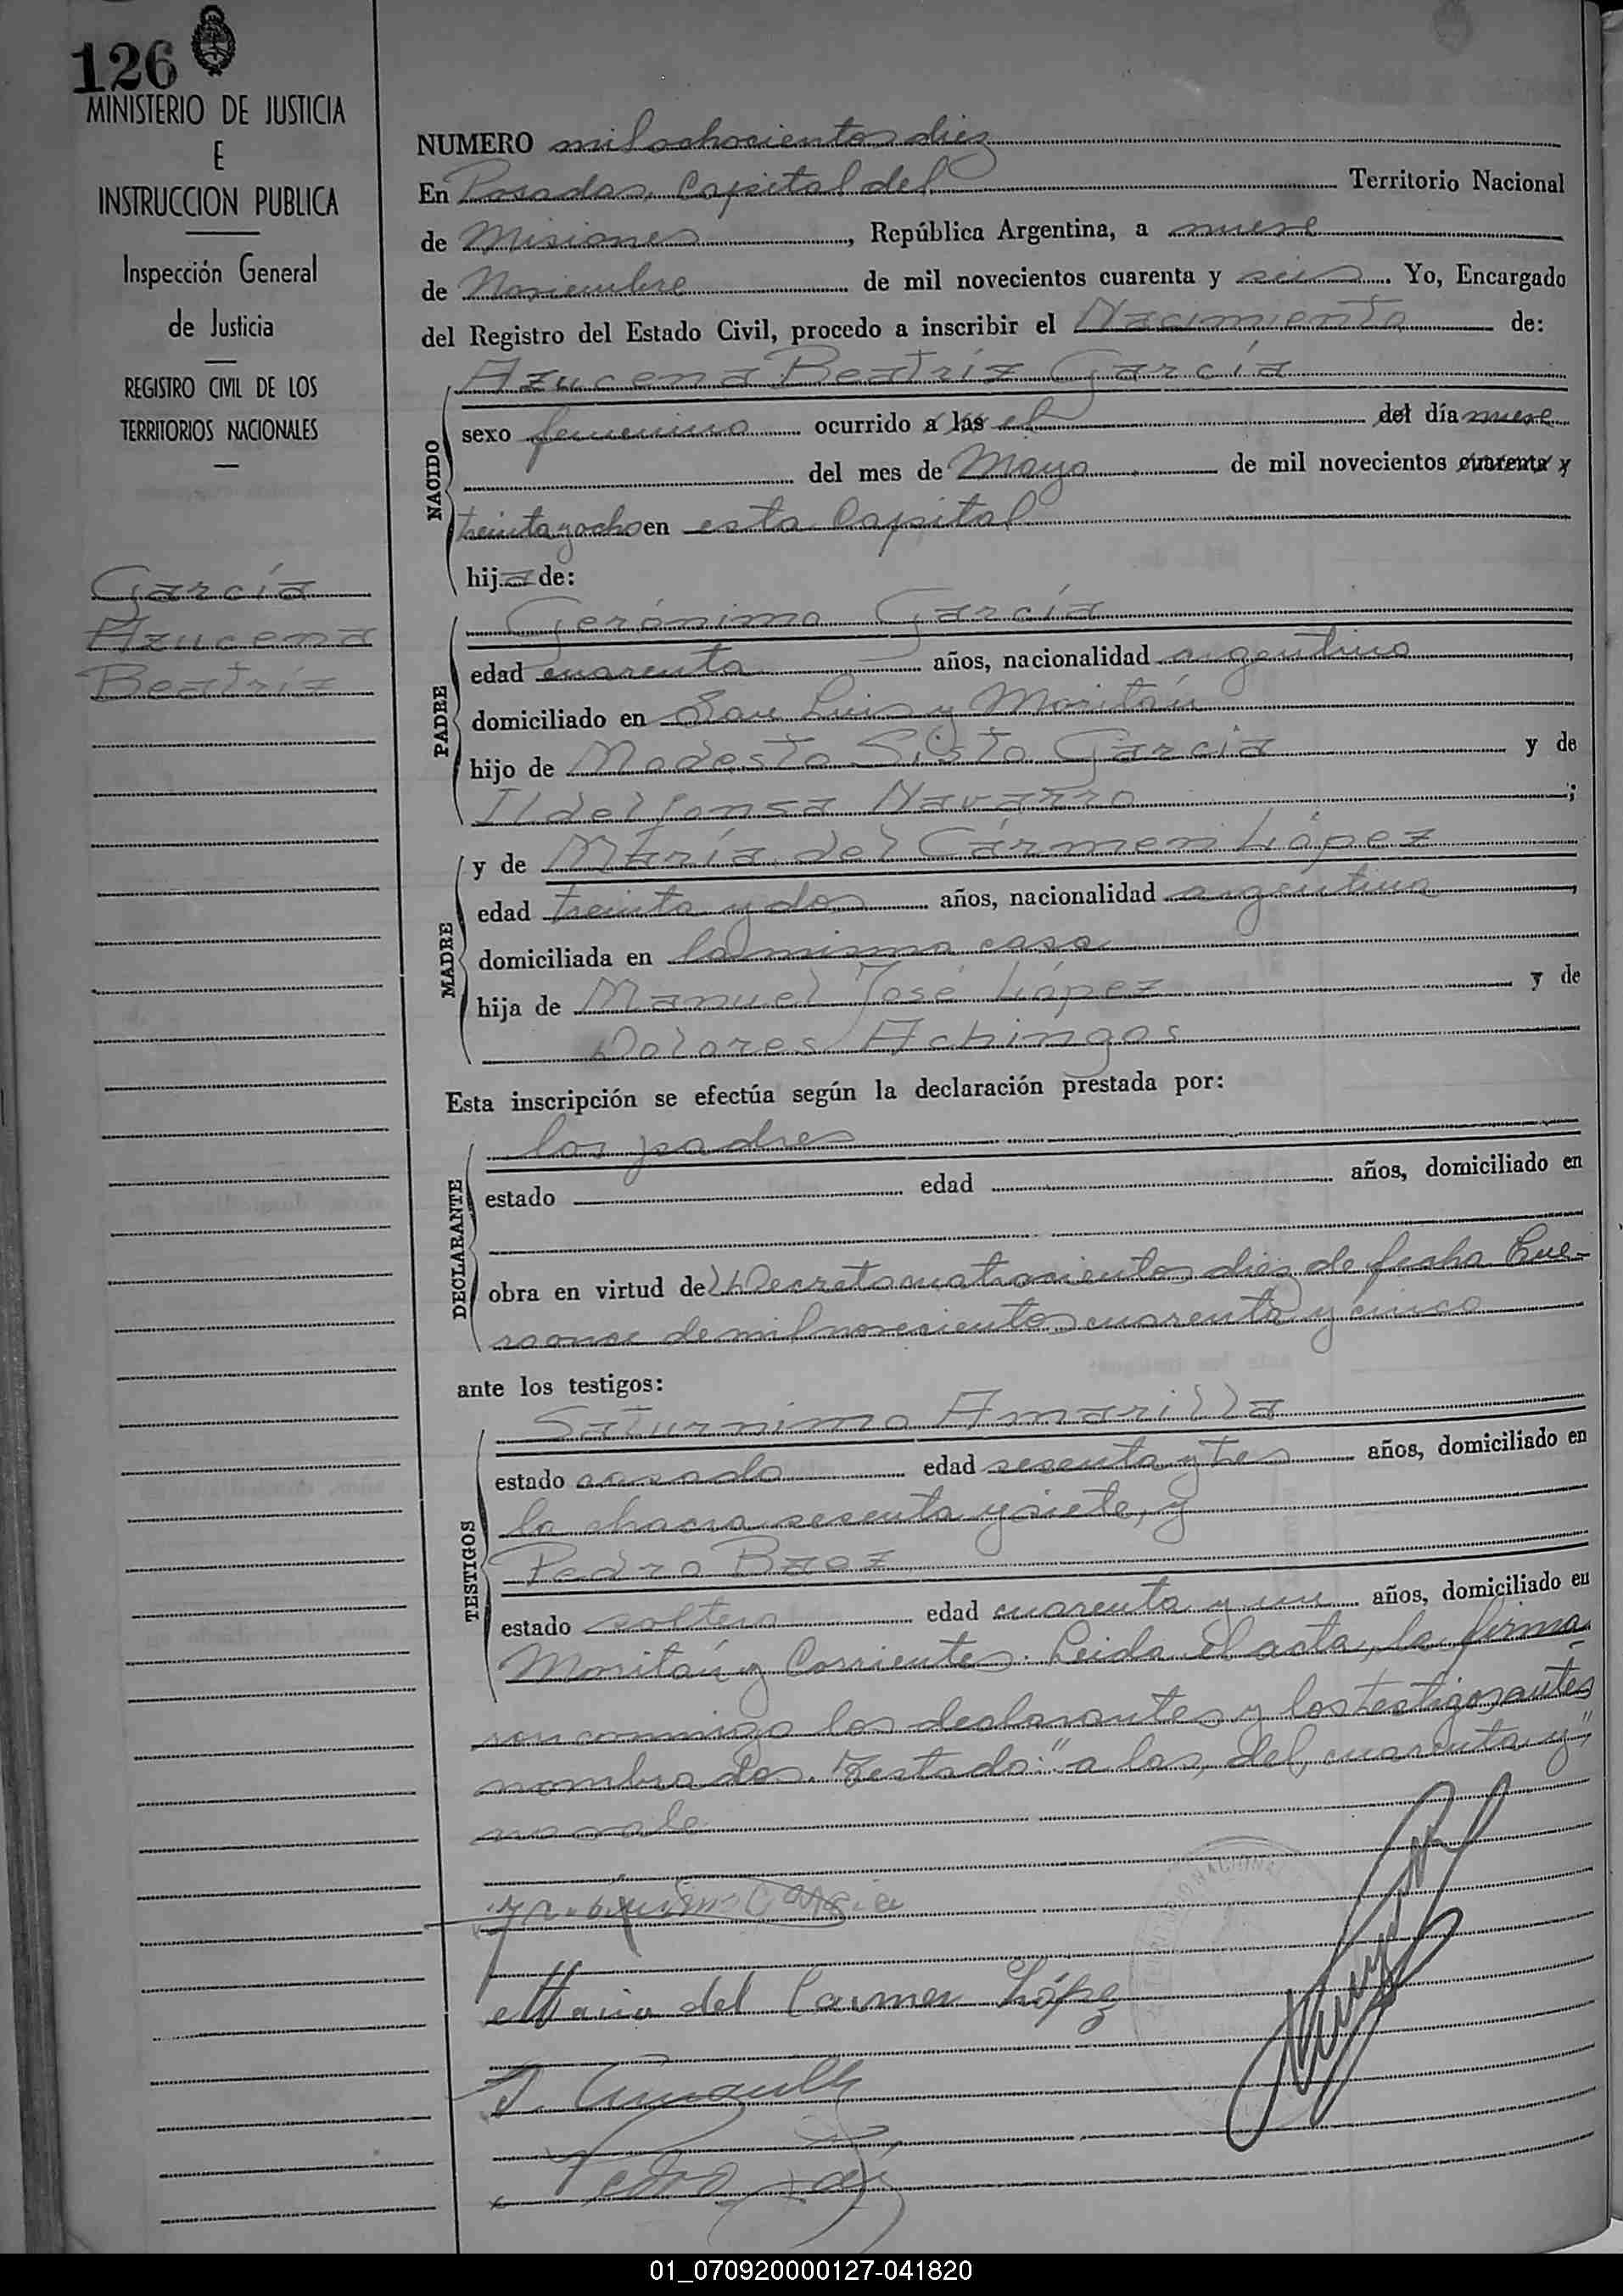 126
MINISTERIO DE JUSTICIA
E
INSTRUCCION PUBLICA
Inspección General
de Justicia
REGISTRO CIVIL DE LOS
TERRITORIOS NACIONALES
García
Azucena
Beatríz
NUMERO mil ochocientos diez
En Posadas, Capital del Territorio Nacional
de Misiones, República Argentina, a nueve
de Noviembre de mil novecientos cuarenta y seis. Yo, Encargado
del Registro del Estado Civil, procedo a inscribir el Nacimiento de:
Azucena Beatríz García
NACIDO
sexo femenino ocurrido a las el del día nueve
del mes de Mayo de mil novecientos cuarenta y
treinta y ocho en esta Capital
hija de:
PADRE
Gerónimo García
edad cuarenta años, nacionalidad argentino
domiciliado en San Luis y Moritán
hijo de Modesto Sisto García y de
Ildelfonsa Navarro;
MADRE
y de María del Cármen López
edad treinta y dos años, nacionalidad argentina
domiciliada en la misma casa
hija de Manuel José López y de
Dolores Achingos
Esta inscripción se efectúa según la declaración prestada por:
DECLARANTE
los padres
estado edad años, domiciliado en
obra en virtud del Decreto cuatrocientos diez de fecha Ene-
ro once de mil novecientos cuarenta y cinco
ante los testigos:
TESTIGOS
Saturnino Amarilla
estado casado edad sesenta y tres años, domiciliado en
la chacra sesenta y siete, y
Pedro Baez
estado soltero edad cuarenta y un años, domiciliado en
Moritán y Corrientes. Leida el acta, la firma-
ron conmigo los declarantes y los testigos antes
nombrados. Testado: "a las, del, cuarenta y"
no vale.
García
Maria del Carmen López
Pedro
01_070920000127-041820